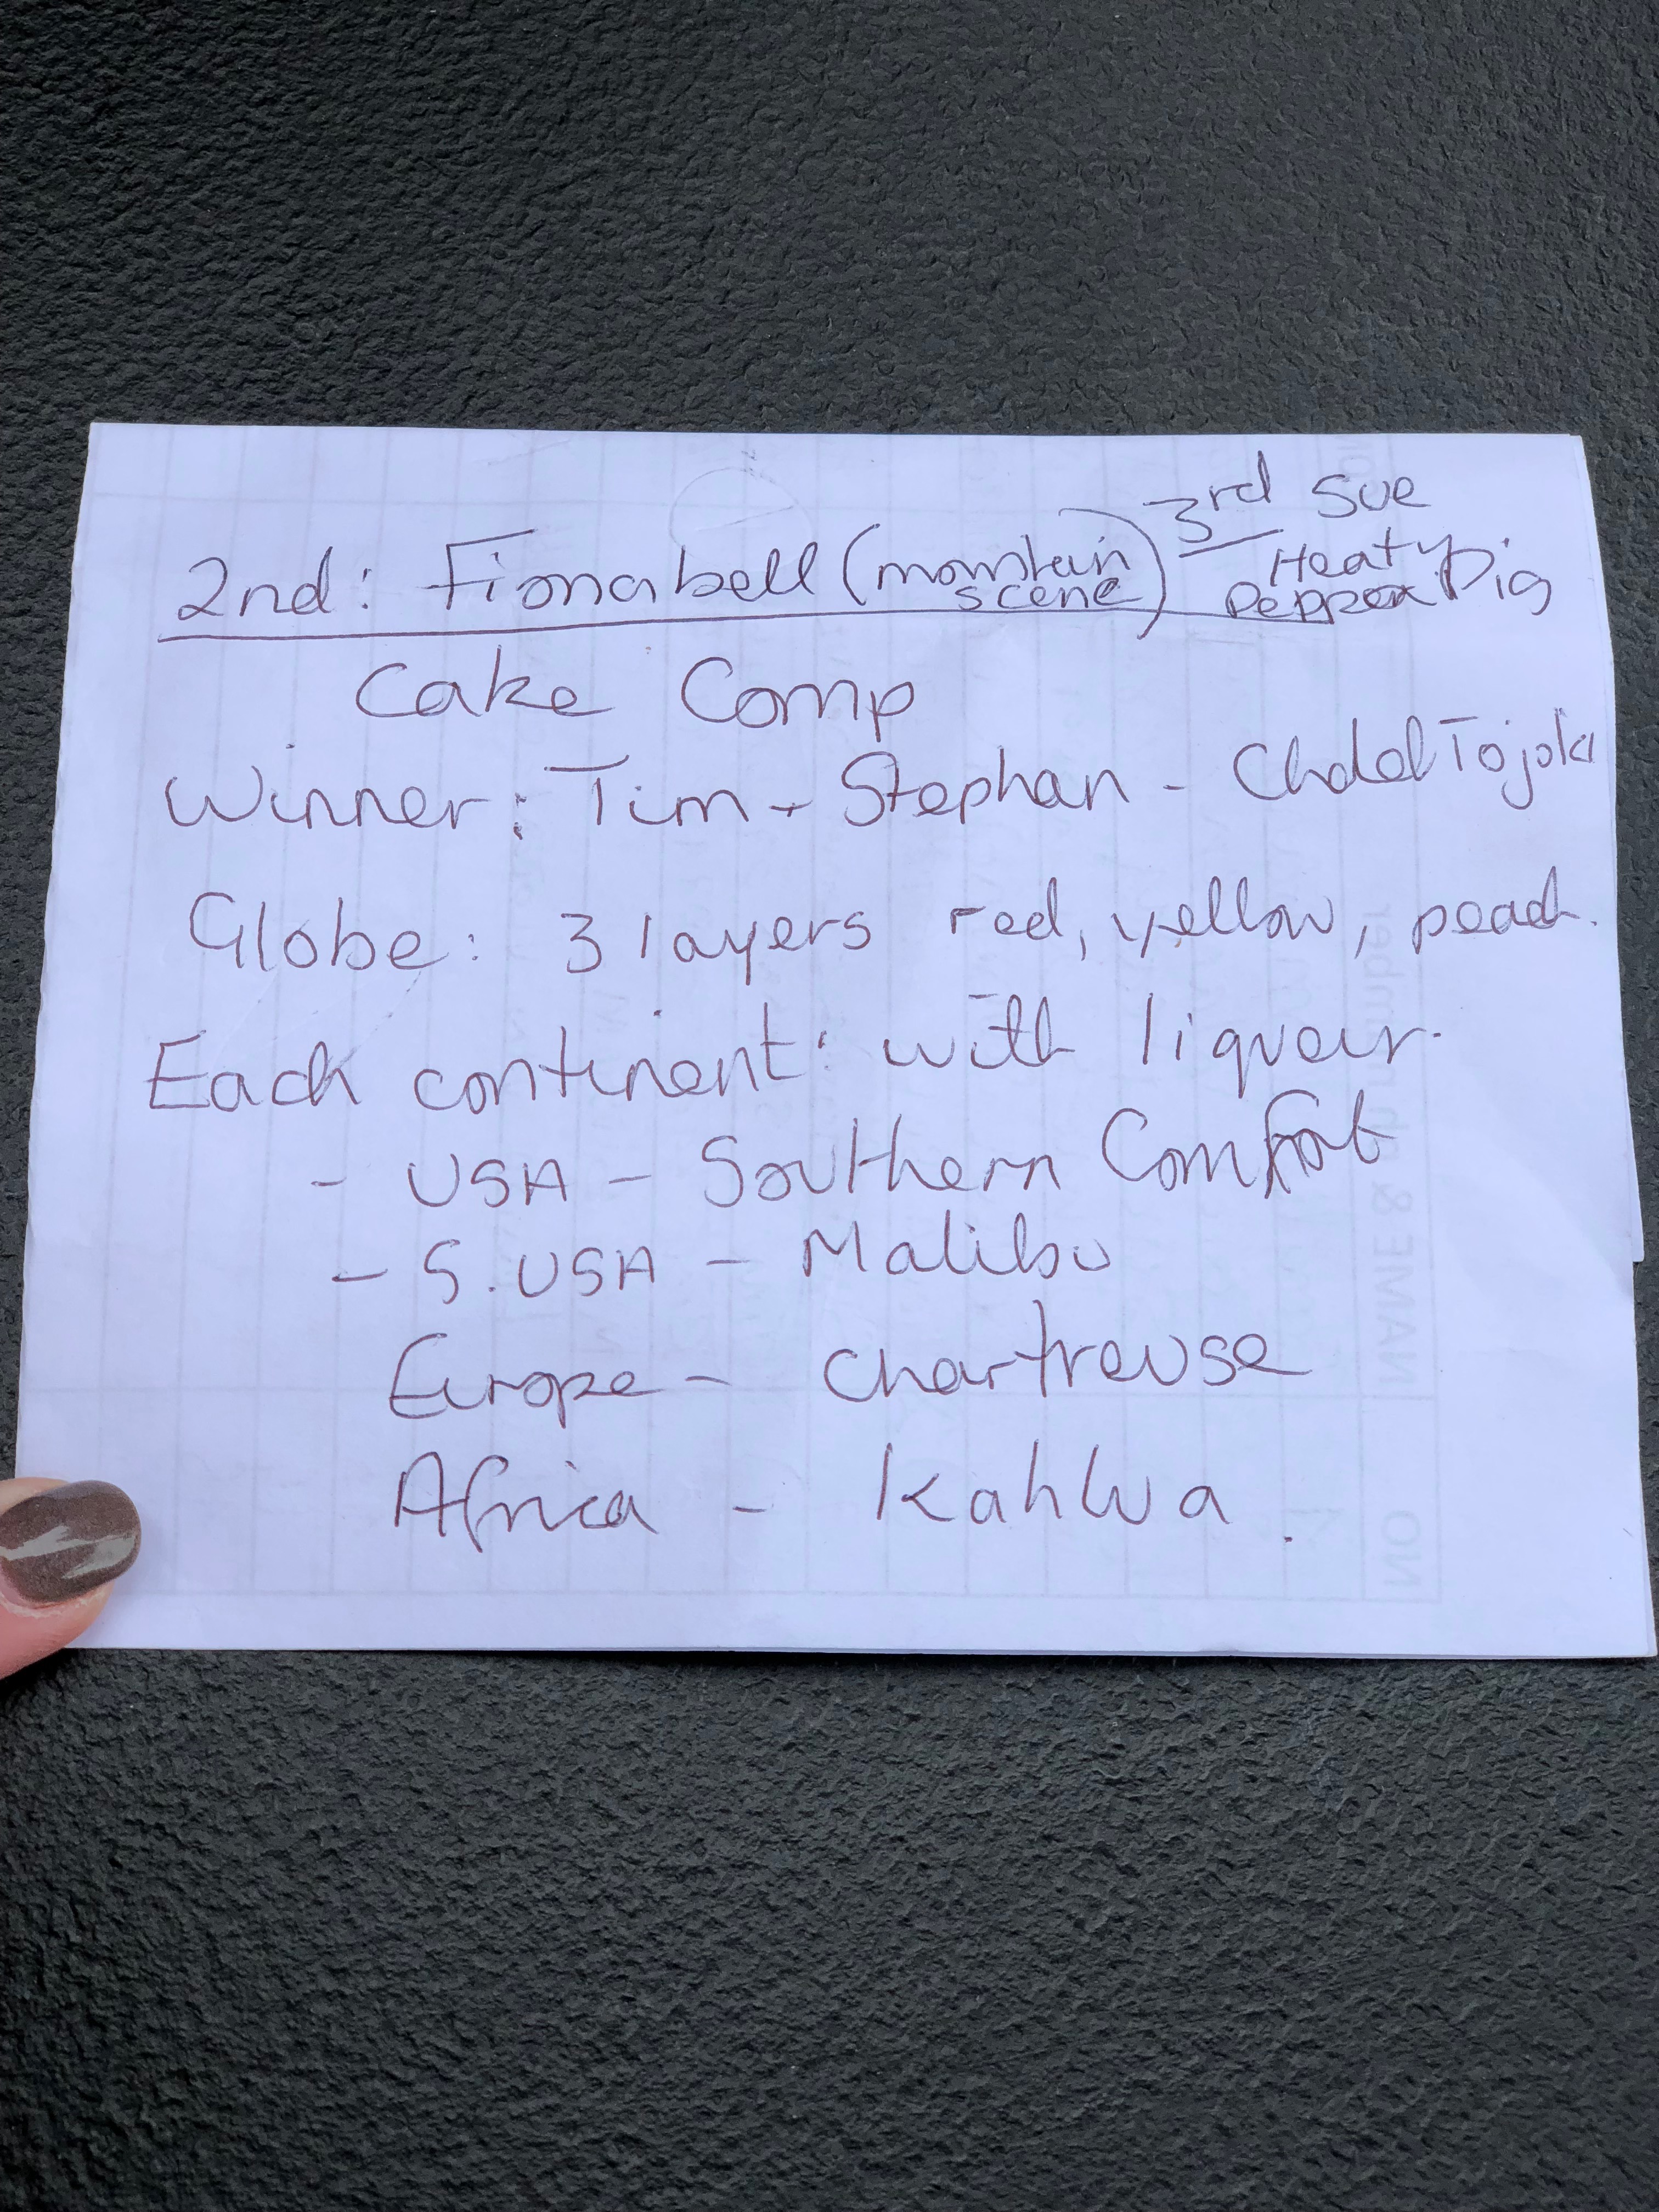 3rd Sue
2nd: Fionabell (mountain scene) Heaty
Pepper Pig
Cake Comp
Winner: Tim - Stephan -
Globe: 3 layers red, yellow, peach.
Each continent: with liqueur.
- USA - Southern Comfort
- S.USA - Malibu
Europe - Chartreuse
Africa - Kahlua.
NAME &
NO